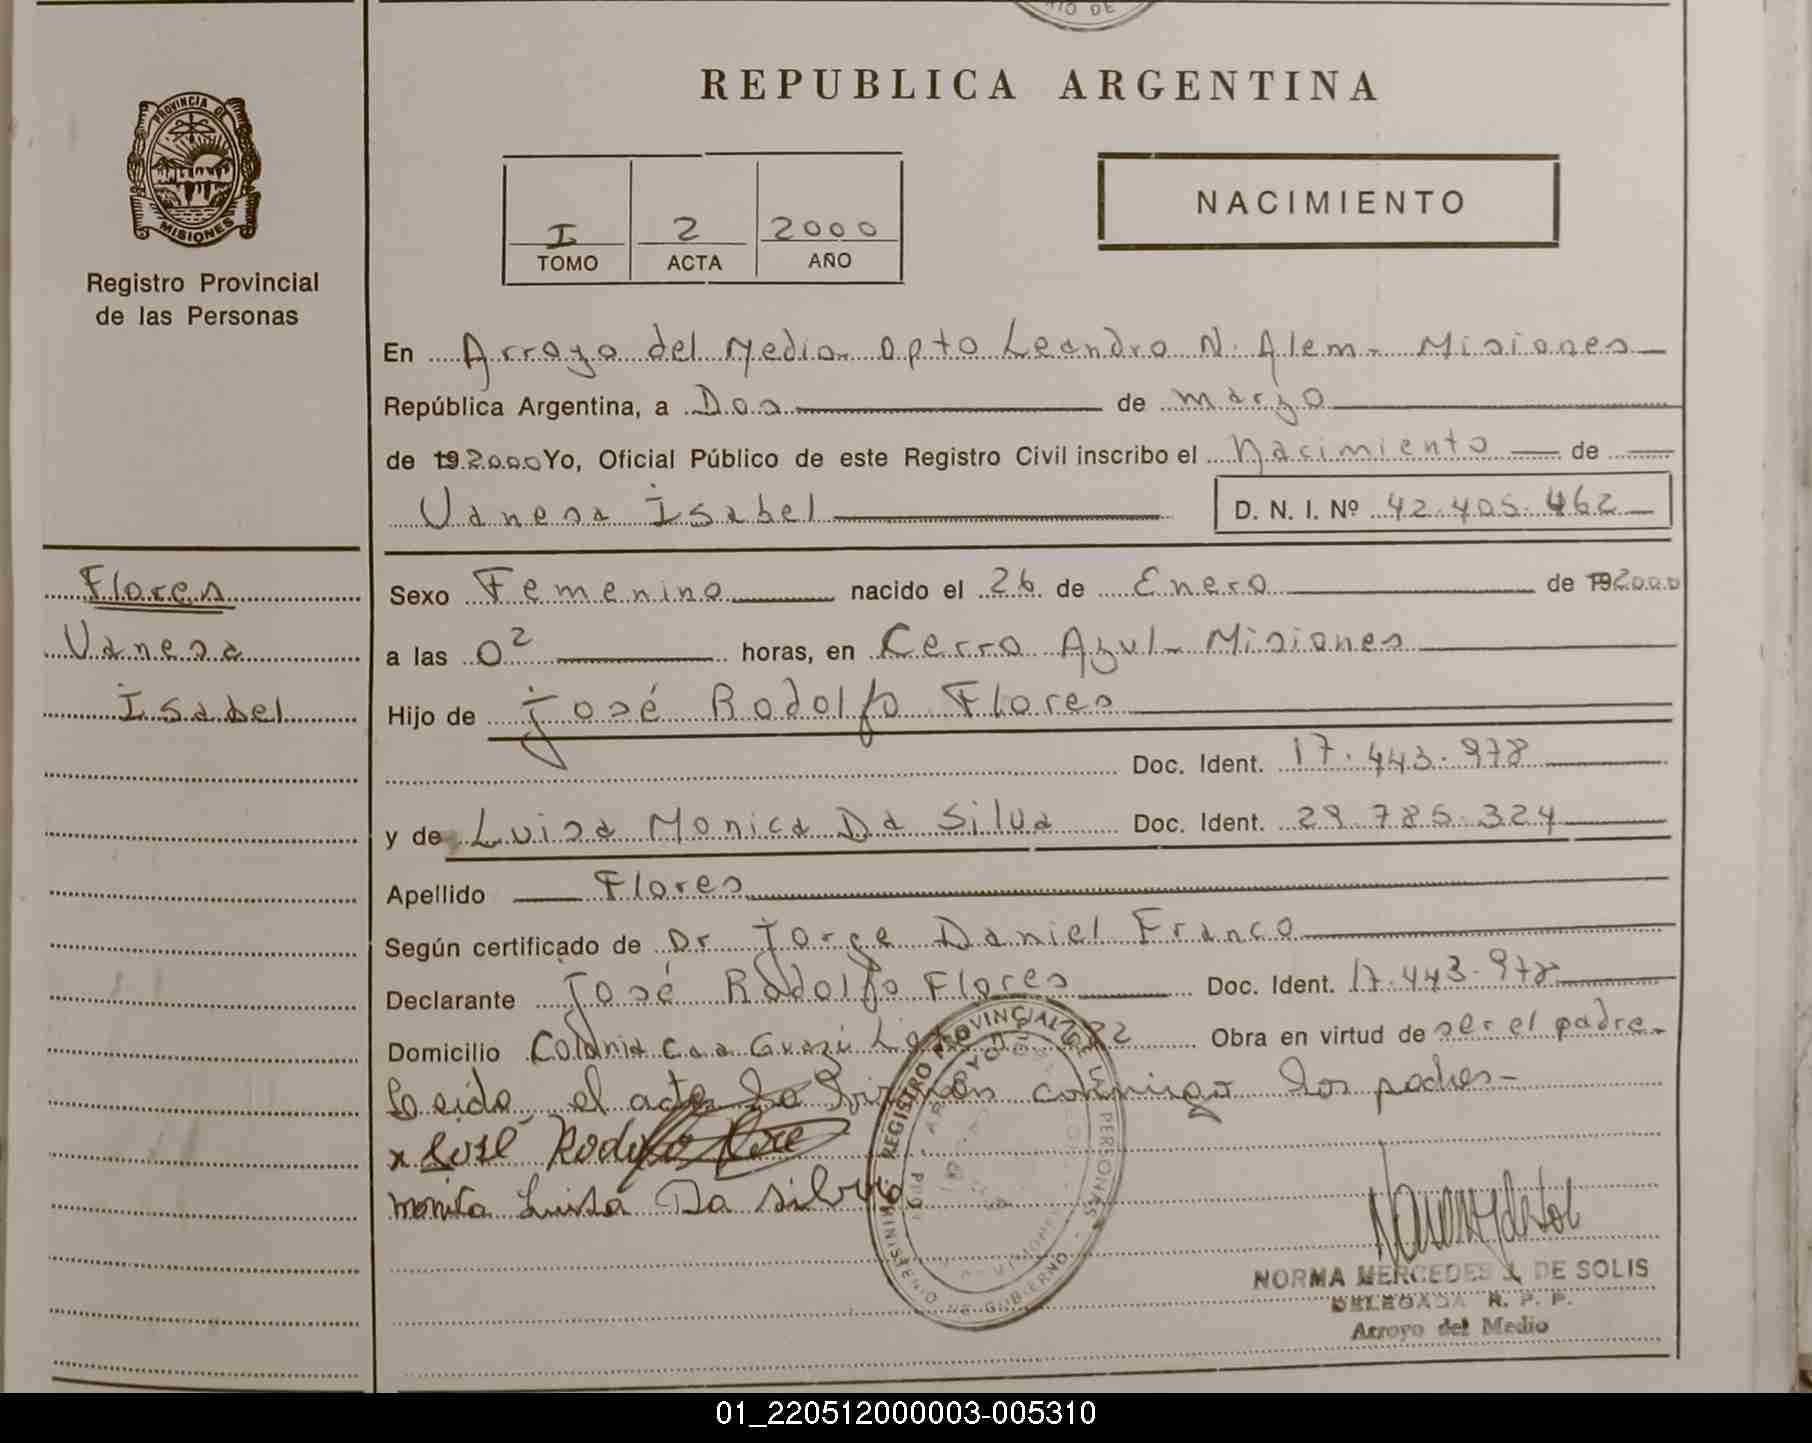 REPUBLICA ARGENTINA
PROVINCIA DE
MISIONES
Registro Provincial
de las Personas
I 2 2000
TOMO ACTA AÑO
NACIMIENTO
En Arroyo del Medio Dpto Leandro N. Alem - Misiones
República Argentina, a Dos de marzo
de 19 2000 Yo, Oficial Público de este Registro Civil inscribo el Nacimiento de
Vanesa Isabel D. N. I. Nº 42.405.462
Flores
Vanesa
Isabel
Sexo Femenino nacido el 26 de Enero de 19 2000
a las 02 horas, en Cerro Azul - Misiones
Hijo de José Rodolfo Flores
Doc. Ident. 17.443.978
y de Luisa Monica Da Silva Doc. Ident. 29.785.324
Apellido Flores
Según certificado de Dr Jorge Daniel Franco
Declarante José Rodolfo Flores Doc. Ident. 17.443.978
Domicilio Colonia Caa Guazú Obra en virtud de ser el padre -
Leida el acta la firman conmigo los padres -
x José Rodolfo Flore
monica Luisa Da silva
REGISTRO PROVINCIAL DE LAS PERSONAS
MINISTERIO DE GOBIERNO
NORMA MERCEDES J. DE SOLIS
DELEGADA R. P. P.
Arroyo del Medio
01_220512000003-005310